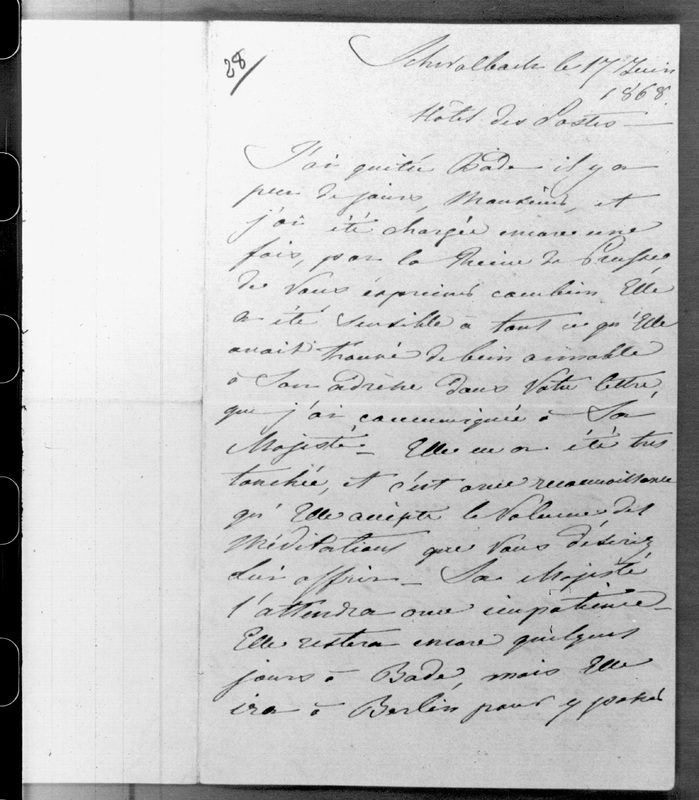 28/
Schwalbach le 17 Juin
1868.
Hôtel des Postes
J'ai quitté Bade il y a
peu de jours, Monsieur, et
j'ai été chargée encore une
fois, par la Reine de Prusse
de Vous exprimer combien Elle
a été sensible à tout ce qu'Elle
avait trouvé de bien aimable
à Son adresse dans Votre lettre,
que j'ai communiquée à Sa
Majesté – Elle en a été très
touchée, et c'est avec reconnaissance
qu'Elle accepte le Volume des
Méditations que Vous désirez
Lui offrir – Sa Majesté
l'attendra avec impatience –
Elle restera encore quelques
jours à Bade, mais Elle
ira à Berlin pour y passer